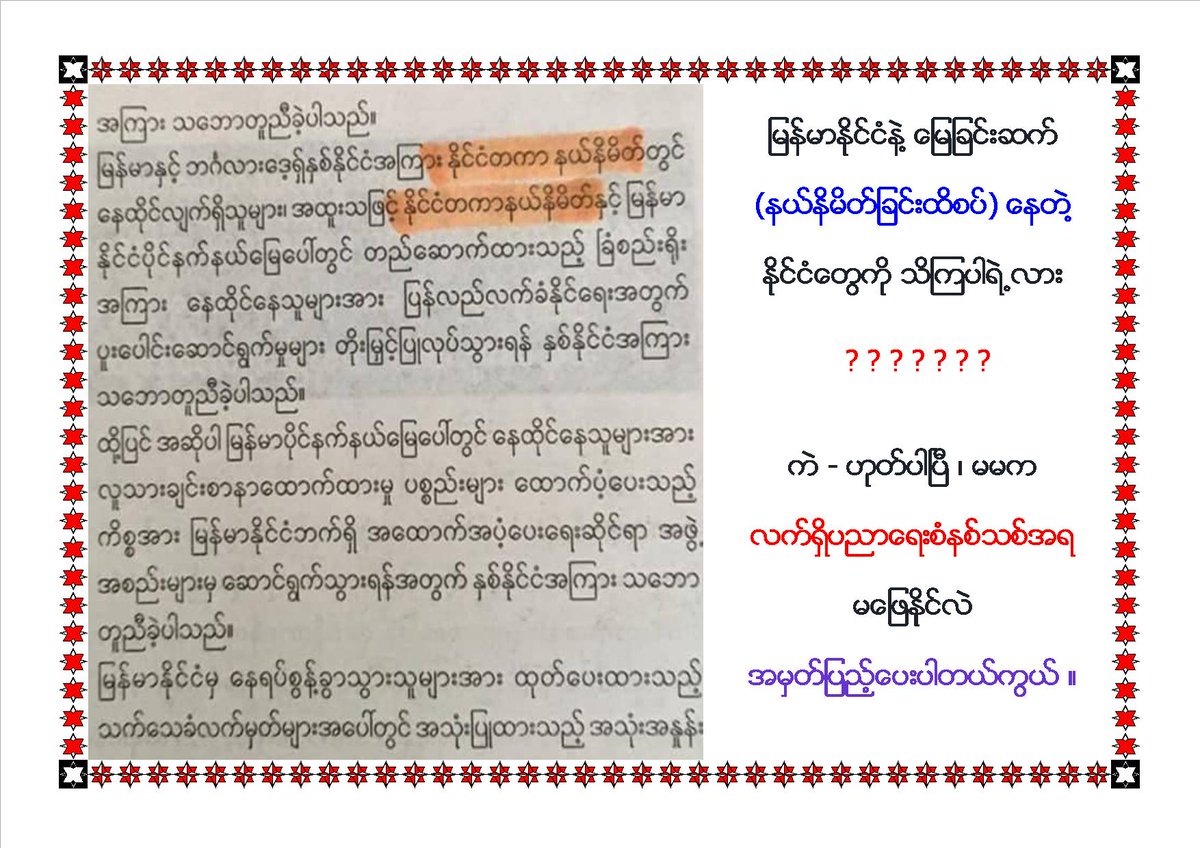 အကြား သဘောတူညီခဲ့ပါသည်။
မြန်မာနှင့် ဘင်္ဂလားဒေ့ရှ်နှစ်နိုင်ငံအကြား နိုင်ငံတကာ နယ်နိမိတ်တွင်
နေထိုင်လျက်ရှိသူများ၊ အထူးသဖြင့် နိုင်ငံတကာနယ်နိမိတ်နှင့် မြန်မာ
နိုင်ငံပိုင်နက်နယ်မြေပေါ်တွင် တည်ဆောက်ထားသည့် ခြံစည်းရိုး
အကြား နေထိုင်နေသူများအား ပြန်လည်လက်ခံနိုင်ရေးအတွက်
ပူးပေါင်းဆောင်ရွက်မှုများ တိုးမြှင့်ပြုလုပ်သွားရန် နှစ်နိုင်ငံအကြား
သဘောတူညီခဲ့ပါသည်။
ထို့ပြင် အဆိုပါ မြန်မာပိုင်နက်နယ်မြေပေါ်တွင် နေထိုင်နေသူများအား
လူသားချင်းစာနာထောက်ထားမှု ပစ္စည်းများ ထောက်ပံ့ပေးသည့်
ကိစ္စအား မြန်မာနိုင်ငံဘက်ရှိ အထောက်အပံ့ပေးရေးဆိုင်ရာ အဖွဲ့
အစည်းများမှ ဆောင်ရွက်သွားရန်အတွက် နှစ်နိုင်ငံအကြား သဘော
တူညီခဲ့ပါသည်။
မြန်မာနိုင်ငံမှ နေရပ်စွန့်ခွာသွားသူများအား ထုတ်ပေးထားသည့်
သက်သေခံလက်မှတ်များအပေါ်တွင် အသုံးပြုထားသည့် အသုံးအနှုန်း
မြန်မာနိုင်ငံနဲ့ မြေခြင်းဆက်
(နယ်နိမိတ်ခြင်းထိစပ်) နေတဲ့
နိုင်ငံတွေကို သိကြပါရဲ့လား
? ? ? ? ? ? ?
ကဲ - ဟုတ်ပါပြီ ၊ မမက
လက်ရှိပညာရေးစံနစ်သစ်အရ
မဖြေနိုင်လဲ
အမှတ်ပြည့်ပေးပါတယ်ကွယ် ။